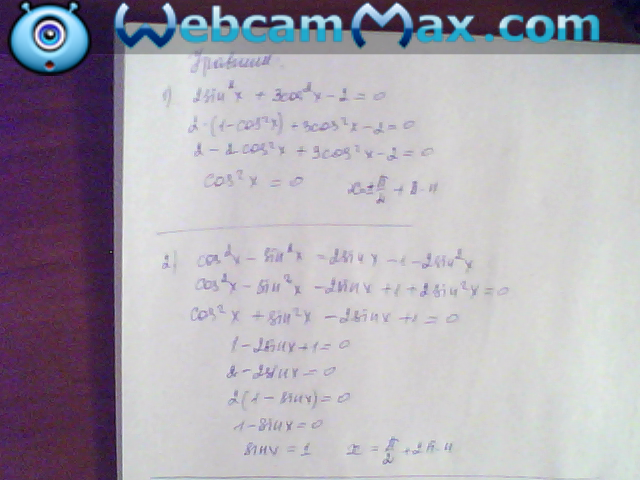 WebcamMax.com
Уравнения.
1) 2sin²x + 3cos²x - 2 = 0
2·(1-cos²x) + 3cos²x - 2 = 0
2 - 2cos²x + 3cos²x - 2 = 0
cos²x = 0 x=±π/2 + π·n
2) cos²x - sin²x = 2sinx - 1 - 2sin²x
cos²x - sin²x - 2sinx + 1 + 2sin²x = 0
cos²x + sin²x - 2sinx + 1 = 0
1 - 2sinx + 1 = 0
2 - 2sinx = 0
2(1 - sinx) = 0
1 - sinx = 0
sinx = 1 x = π/2 + 2π·n